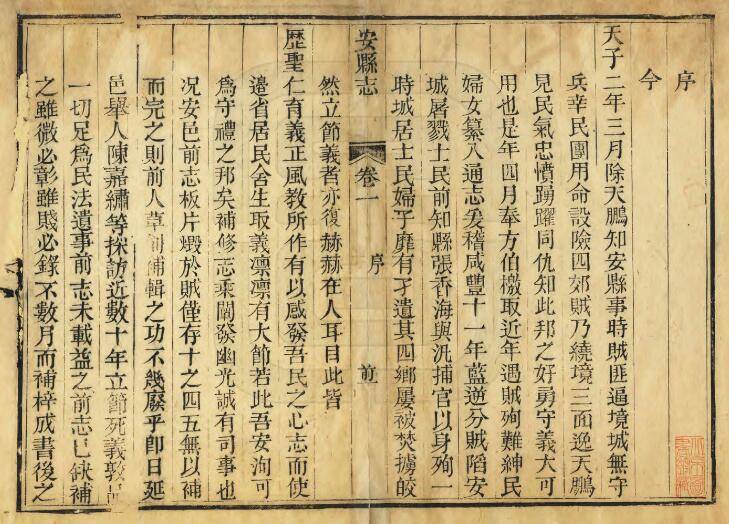 序
今
天子二年三月除天鵬知安縣事時賊匪逼境城無守
兵幸民團用命設險四郊賊乃繞境三面逸天鵬
見民氣忠憤踴躍同仇知此邦之好勇守義大可
用也是年四月奉方伯檄取近年遇賊殉難紳民
婦女纂入通志爰稽咸豐十一年藍逆分賊陷安
城屠戮士民前知縣張香海與汛捕官以身殉一
時城居士民婦子靡有孑遺其四鄉屢被焚擄皎
安縣志 卷一 序 前
然立節義者亦復赫赫在人耳目此皆
歷聖仁育義正風教所作有以感發吾民之心志而使
邊省居民舍生取義凛凛有大節若此吾安洵可
為守禮之邦矣補修志乘闡發幽光誠有司事也
況安邑前志板片燬於賊僅存十之四五無以補
而完之則前人草創補輯之功不幾廢乎即日延
邑舉人陳嘉繡等採訪近數十年立節死義敦
一切足為民法遺事前志未載益之前志已缺補
之雖微必彰雖賤必錄不數月而補梓成書後之